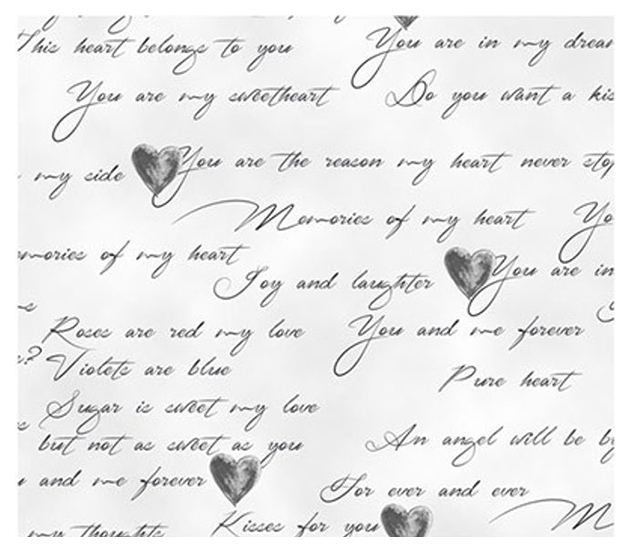 This heart belongs to you
You are in my dream
You are my sweetheart
Do you want a kis
my side
You are the reason my heart never stop
Memories of my heart
Yo
mories of my heart
Joy and laughter
You are in
Roses are red my love
You and me forever
Violets are blue
Pure heart
Sugar is sweet my love
but not as sweet as you
An angel will be by
and me forever
For ever and ever
Kisses for you
M
my thoughts